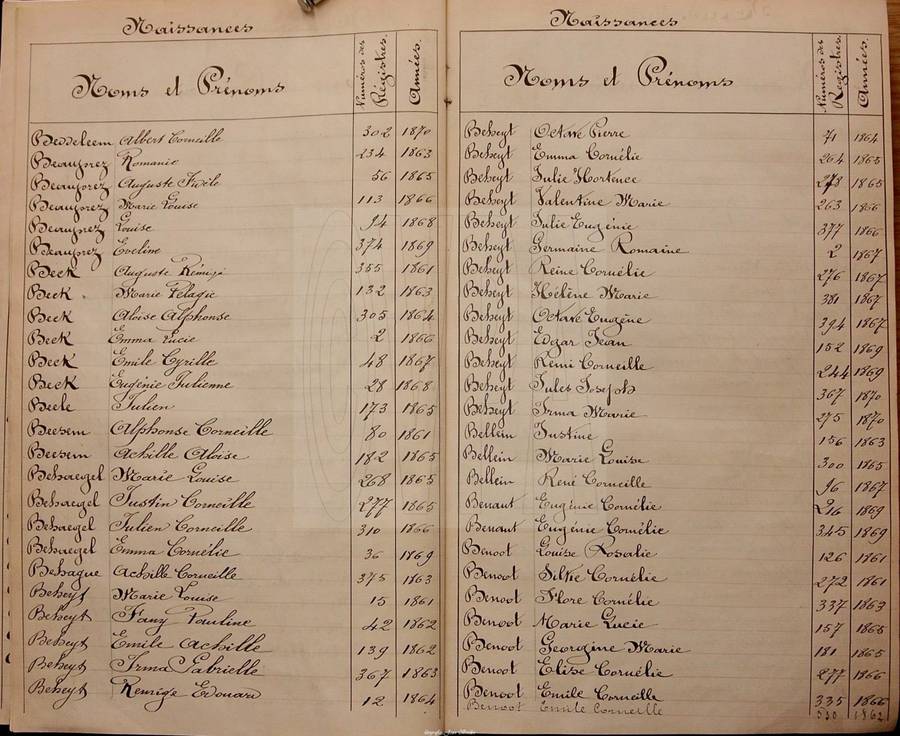 Naissances
Noms et Prénoms
Numéros des Régistres.
Années.
Beddeleem Albert Corneille 302 1870
Beauprez Romanie 234 1863
Beauprez Auguste Fidèle 56 1865
Beauprez Marie Louise 113 1866
Beauprez Louise 94 1868
Beauprez Eveline 374 1869
Beck Auguste Rémigé 355 1861
Beck Marie Pélagie 132 1863
Beck Aloïse Alphonse 305 1864
Beck Emma Lucie 2 1866
Beck Emile Cyrille 48 1867
Beck Eugénie Julienne 28 1868
Beele Julien 173 1865
Beesem Alphonse Corneille 80 1861
Beesem Achille Aloïse 182 1865
Behaegel Marie Louise 268 1865
Behaegel Justin Corneille 277 1865
Behaegel Julien Corneille 310 1866
Behaegel Emma Cornélie 36 1869
Behague Achille Corneille 375 1863
Beheyt Marie Louise 15 1861
Beheyt Fany Pauline 42 1862
Beheyt Emile Achille 139 1862
Beheyt Irma Gabrielle 367 1863
Beheyt Remige Edouard 12 1864
Naissances
Noms et Prénoms
Numéros des Registres.
Années.
Beheyt Octave Pierre 71 1864
Beheyt Emma Cornélie 264 1865
Beheyt Julie Hortence 278 1865
Beheyt Valentine Marie 263 1866
Beheyt Julie Eugénie 377 1866
Beheyt Germaine Romaine 2 1867
Beheyt Reine Cornélie 276 1867
Beheyt Hélène Marie 381 1867
Beheyt Octave Eugène 394 1867
Beheyt Edgar Jean 152 1869
Beheyt Rémi Corneille 244 1869
Beheyt Jules Joseph 367 1870
Beheyt Irma Marie 275 1870
Bellein Justine 156 1863
Bellein Marie Louise 300 1865
Bellein René Corneille 96 1867
Benaut Eugénie Cornélie 216 1869
Benaut Eugénie Cornélie 345 1869
Benoot Louise Rosalie 126 1861
Benoot Silvie Cornélie 272 1861
Benoot Flore Cornélie 337 1863
Benoot Marie Lucie 157 1865
Benoot Georgine Marie 181 1865
Benoot Elise Cornélie 277 1866
Benoot Emile Corneille 335 1866
Benoot Emile Corneille 330 1862